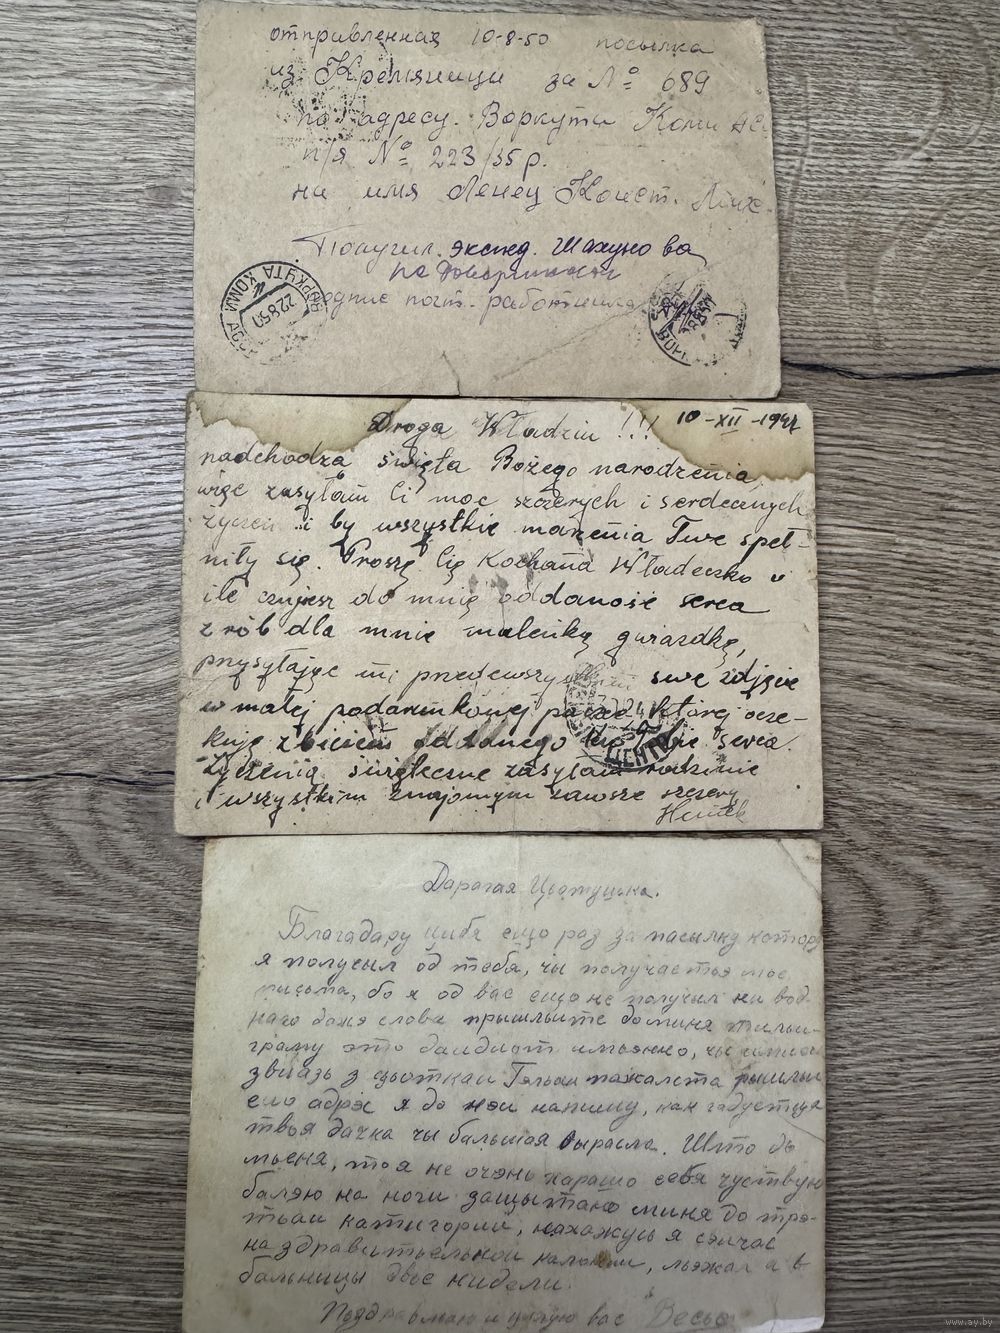 отправленная 10-8-50 посылка
из Кремяницы за № 689
по адресу. Воркута Коми АС
п/я № 223/35 р.
на имя Ленец Конст. Мих.
Получил. экспед. Шахунова
по доверенности
подпис почт. работника
ВОРКУТА КОМИ АССР
22.8.50
10-XII-194
Droga Władziu!!!
nadchodzą święta Bożego narodzenia,
więc zasyłam Ci moc szczerych i serdecznych
życzeń i by wszystkie mażenia Twe speł-
niły się. Proszę Cię Kochana Władeczko i
ile czujesz do mnie oddaność serca
zrób dla mnie maleńką gwiazdkę,
przysyłając mi przedewszystkim swe zdjęcie
w małej podarunkowej której ocze-
kuję z biciem oddanego Tobie serca.
Życzenia świąteczne zasyłam rodzinie
i wszystkim znajomym zawsze szczery
Heniek
Дарагая Цьотушька.
Благадару цибя ещо раз за пасылку котору
я полусыл од тебя, чы получаетьэ мое
письма, бо я од вас ещо не получыл ни вод-
наго даже слова прышльите до миня тильи-
граму это дайдиот можно, чы
звиазь з цьоткай пажалста прышльи
ейо адрэс я до нэй напишу, как
твоя дачка чы бальшая вырасла. Што до
мьеня, то я не очэнь харашо себя чуствую
балэю на ноги защытано миня до трэ-
тьай катигории, нахажусь я сэйчас
на здравительной, льэжал а в
бальницы двье нидели.
Поздравляю и цулую вас Весьо
www.ay.by